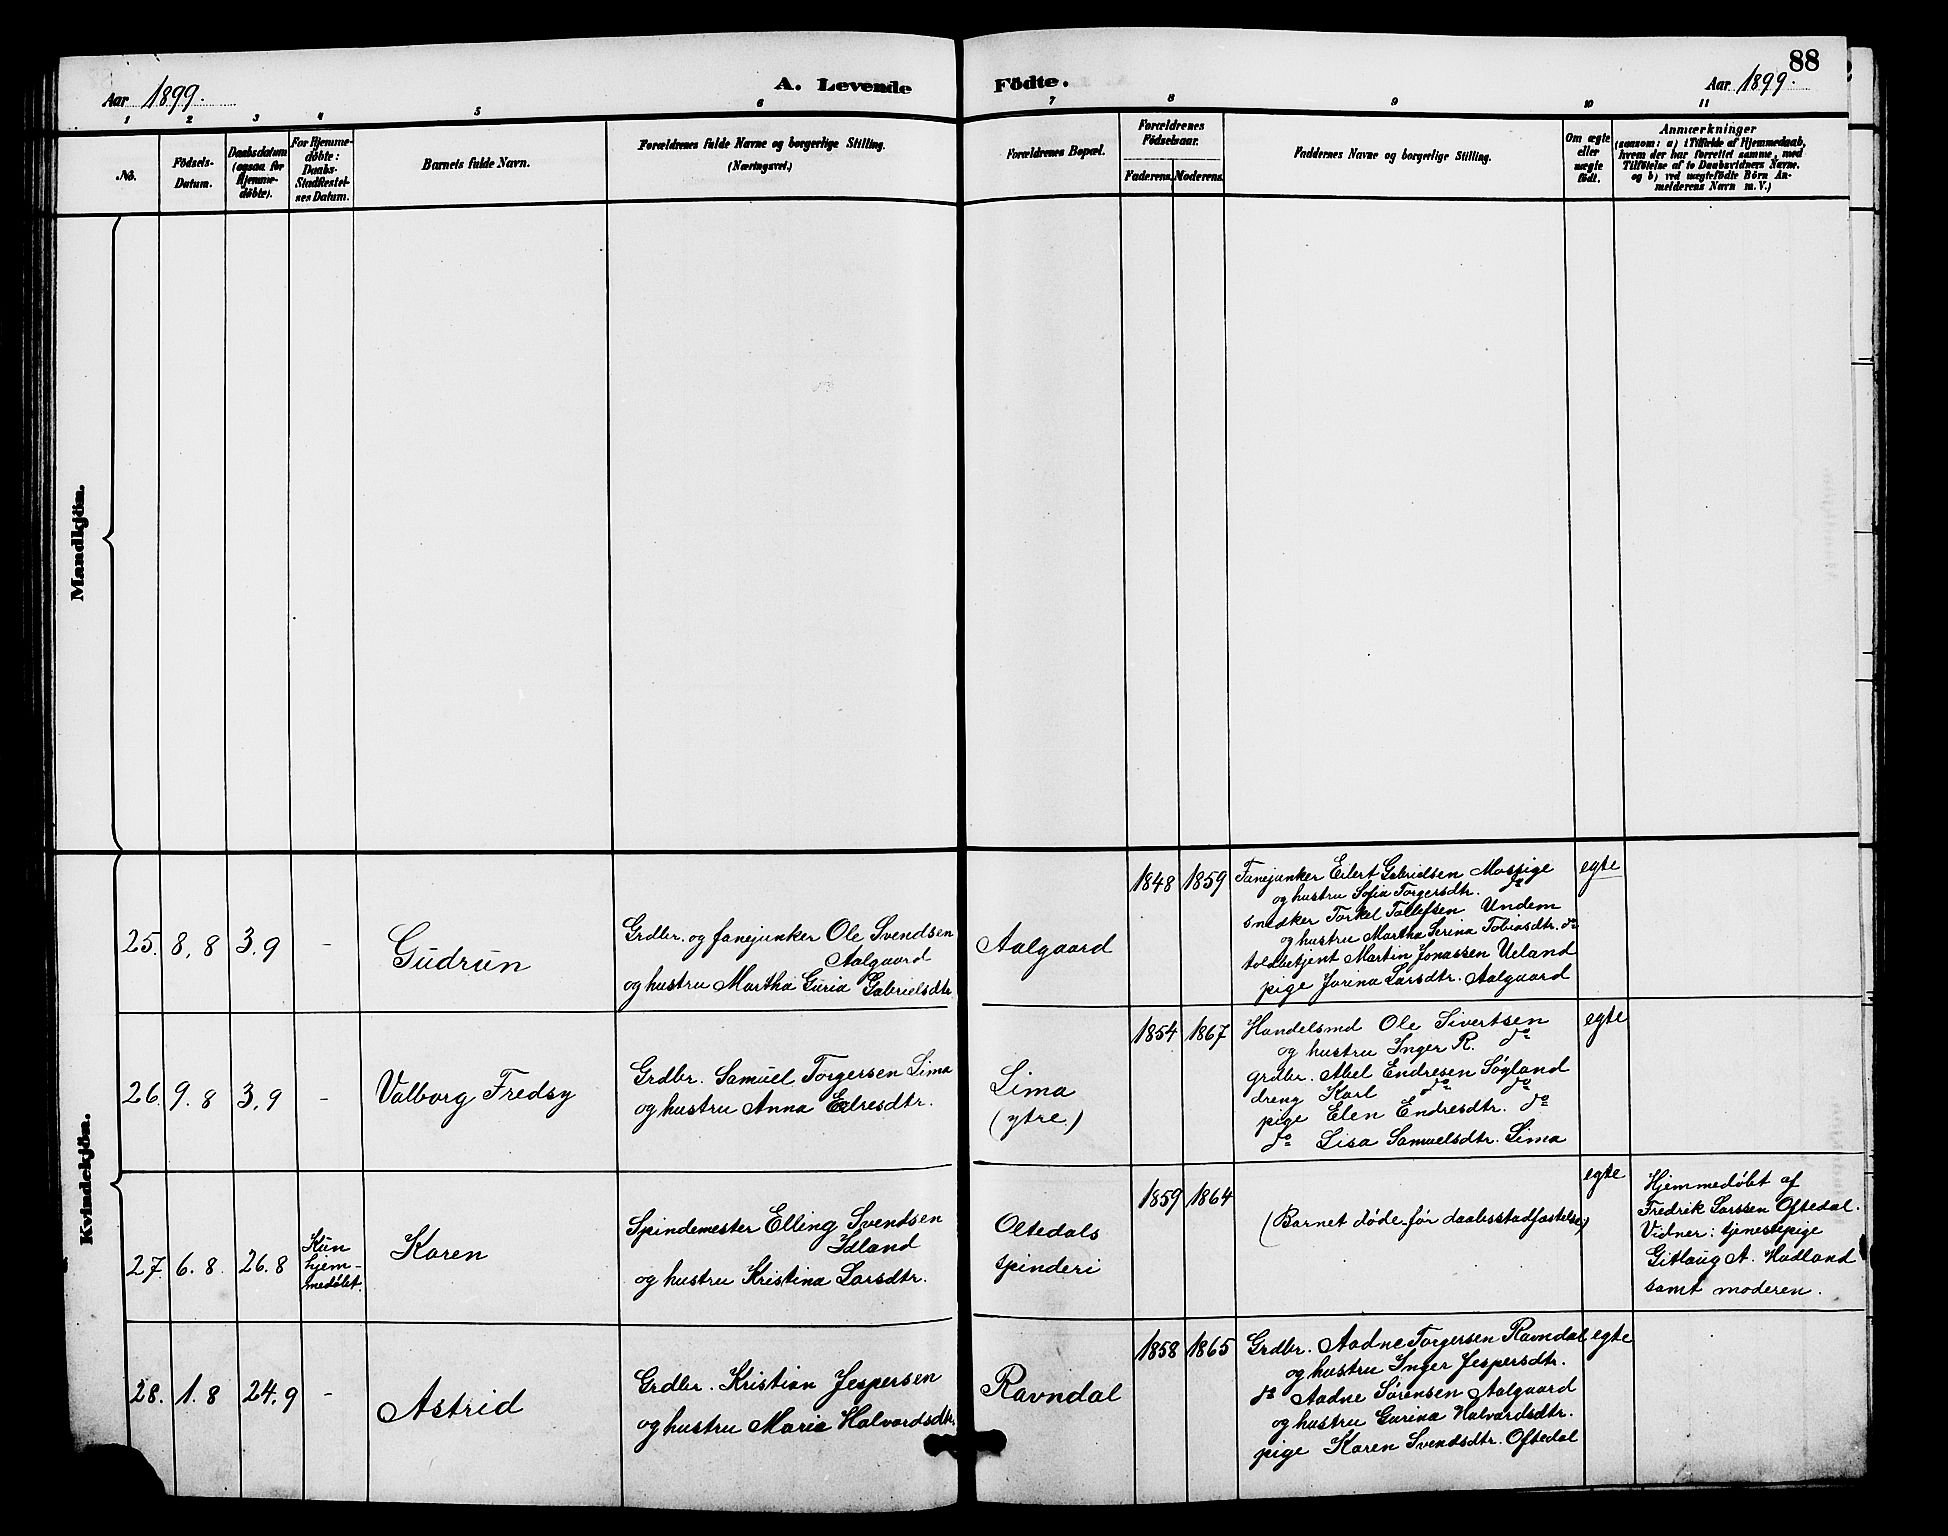 88
Aar 1899.
A. Levende
Födte.
Aar 1899.
1 2 3 4 5 6 7 8 9 10 11
No.
Födsels-
Datum.
Daabsdatum
(ogsaa for
Hjemme-
døbte).
For Hjemme-
døbte:
Daabs-
Stadfæstel-
ses Datum.
Barnets fulde Navn.
Forældrenes fulde Navne og borgerlige Stilling.
(Næringsvei.)
Forældrenes Bopæl.
Forældrenes
Födselsaar.
Faderens.
Moderens.
Faddernes Navne og borgerlige Stilling.
Om ægte
eller
uægte
født.
Anmærkninger
(saasom: a) i Tilfælde af Hjemmedaab,
hvem der har forrettet samme, med
Tilföielse af to Daabsvidners Navne.
og b) ved uægtefödte Börn An-
melderens Navn m.V.)
Mandkjön.
Kvindekjön.
25. 8,8 3,9 -
Gudrun
Grdbr. og fanejunker Ole Svendsen
Aalgaard
og hustru Martha Guria Gabrielsdtr
Aalgaard
1848 1859
Fanejunker Eilert Gabrielsen Mossige
og hustru Sofia Torgersdtr. do
snedker Torkel Tollefsen Undem
og hustru Martha Serina Tobiasdtr. do
toldbetjent Martin Jonassen Ueland
pige Jorina Larsdtr. Aalgaard
egte
26. 9.8 3,9 -
Valborg Fredsy
Grdbr. Samuel Torgersen Lima
og hustru Anna Edresdtr.
Lima
(ytre)
1854 1867
Handelsmd Ole Sivertsen
og hustru Inger R. do
grdbr. Abel Endresen Søyland
dreng Karl do do
pige Elen Endresdtr. do
do Lisa Samuelsdtr. Lima
egte
27. 6.8 26.8
Kun
hjem-
medøbt.
Karen
Spindemester Elling Svendsen
Idland
og hustru Kristina Larsdtr.
Oltedals
spinderi
1859 1864
(Barnet døde før daabsstadfæstelse)
egte
Hjemmedøbt af
Fredrik Larssen Oftedal.
Vidner: tjenestepige
Gitlaug A. Hadland
samt moderen.
28. 1.8 24,9 -
Astrid
Grdbr. Kristian Jespersen
og hustru Maria Halvardsdtr.
Ravndal
1858 1865
Grdbr. Aadne Torgersen Ravndal
og hustru Inger Jespersdtr.
do Aadne Sørensen Aalgaard
og hustru Gurina Halvardsdtr.
pige Karen Svendsdtr. Oftedal
egte